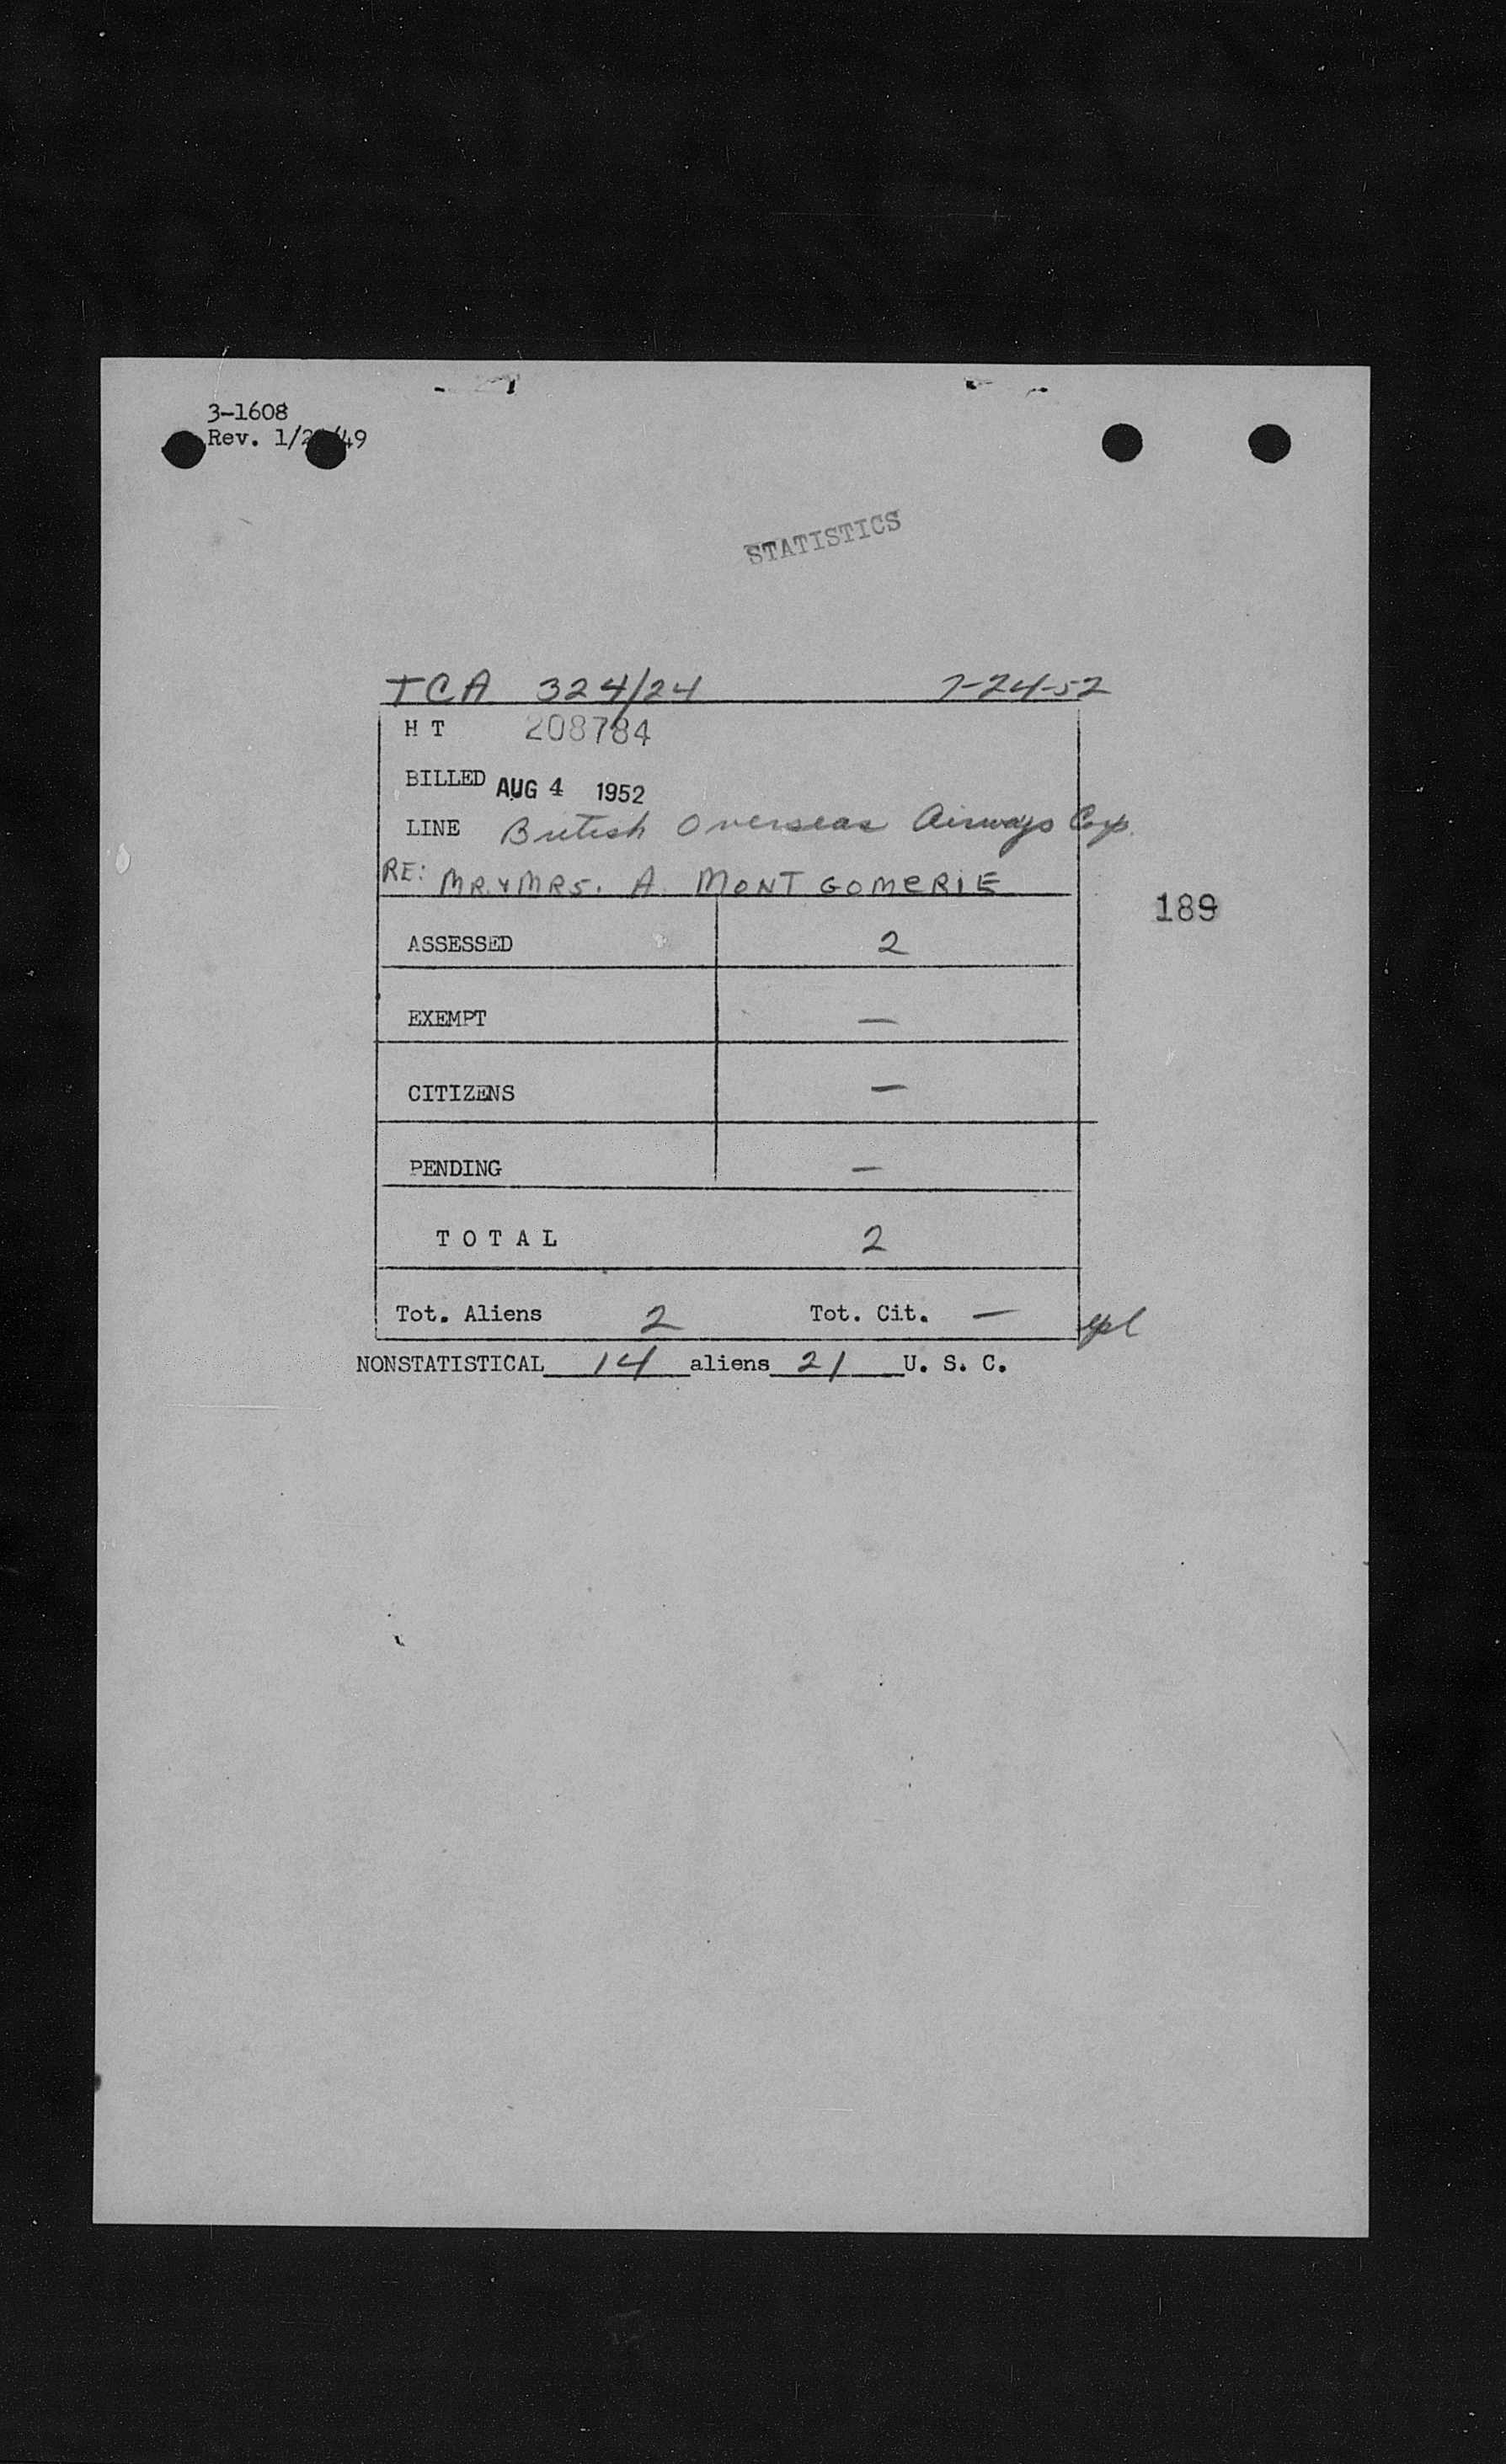 3-1608
Rev. 1/2 /49
STATISTICS
TCA 324/24 7-24-52
H T 208784
BILLED AUG 4 1952
LINE British Overseas Airways Corp.
RE: MR. & MRS. A. MONTGOMERIE
189
ASSESSED 2
EXEMPT —
CITIZENS —
PENDING —
T O T A L 2
Tot. Aliens 2 Tot. Cit. —
NONSTATISTICAL 14 aliens 21 U. S. C.